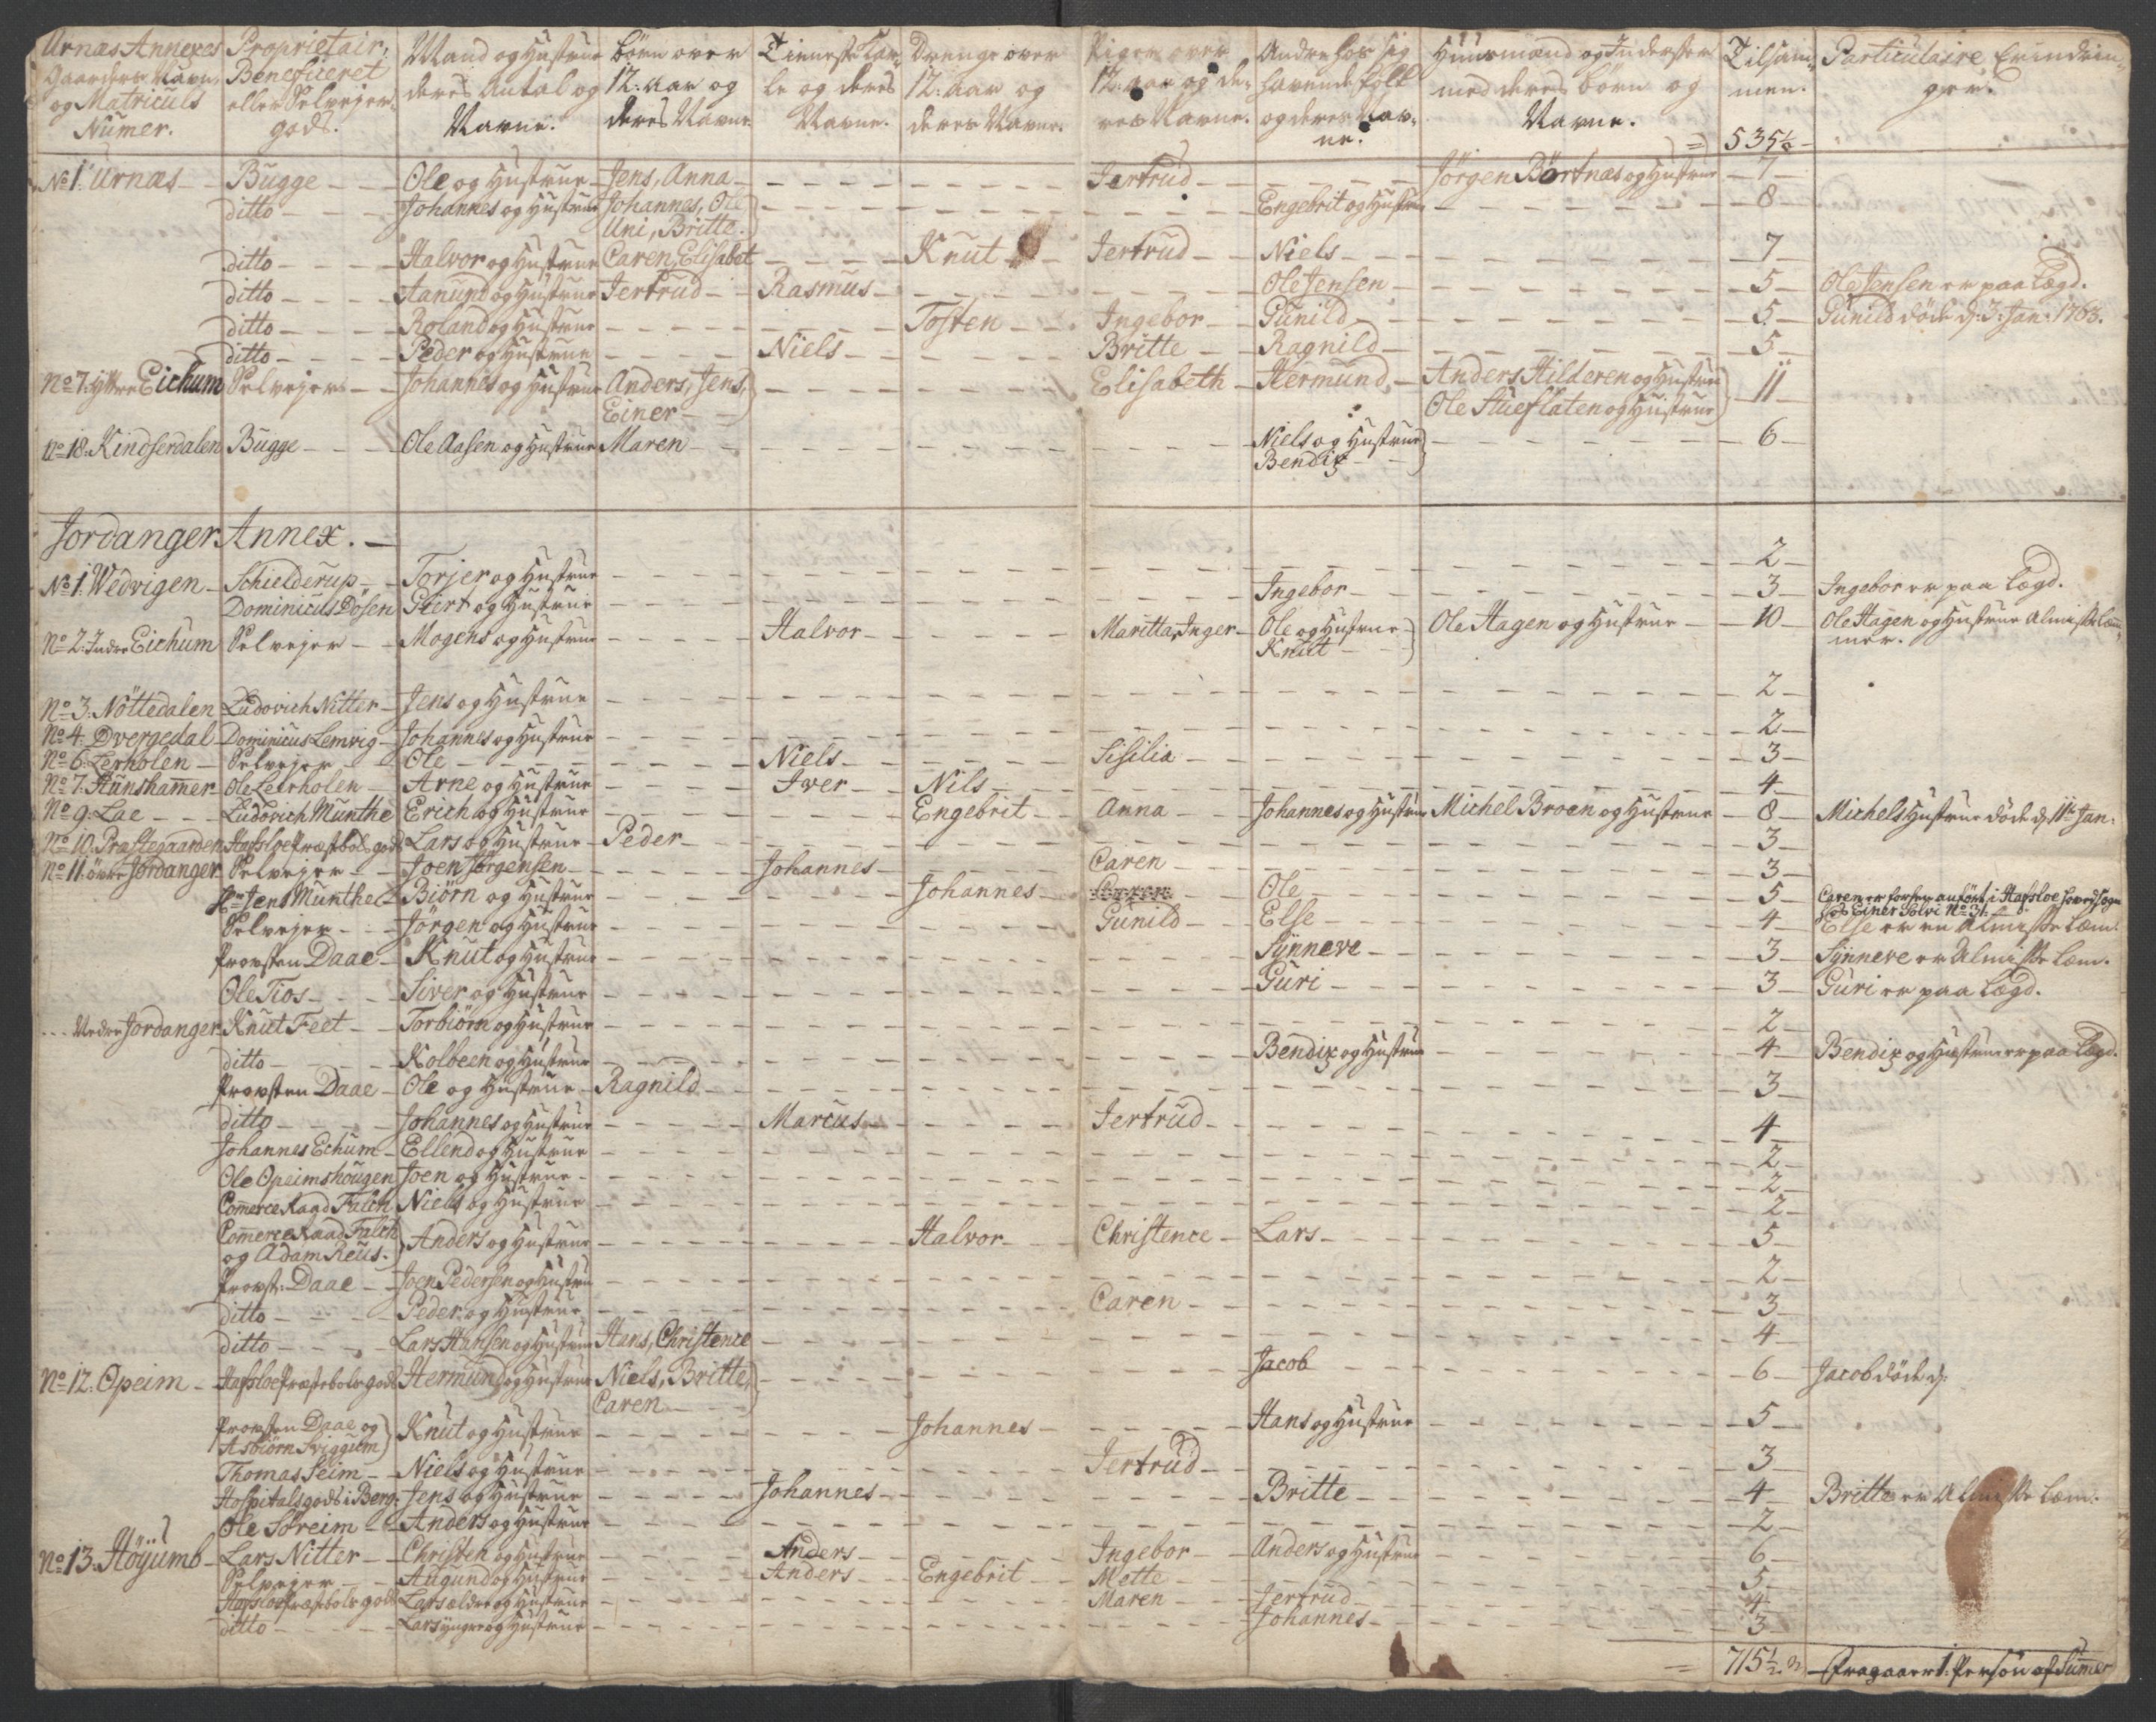 Urnæs Annexes Gaarders Navne og Matriculs Numer. | Proprietair, Beneficeret eller Selvejer gods. | Mand og Hustrue deres Antal og Navne. | Børn over 12: aar og deres Navne. | Tieneste Karle og deres Navne. | Drenge over 12: aar og deres Navne. | Piger over 12: aar og deres Navne. | Andre hos sig havende folk og deres Navne. | Huusmænd og Inderster med deres børn og Navne. | Tilsammen. | Particulaire Erindringer.
= 535½
No 1: Urnæs | Bugge | Ole og Hustrue | Jens, Anna | Jertrud | Jörgen Börtnæs og Hustrue | 7
ditto | Johannes og Hustrue | Johannes, Ole Uni, Britte. | Engebrit og Hustrue | 8
ditto | Halvor og Hustrue | Caren, Elisabet | Knut | Jertrud | Niels | 7
ditto | Aanund og Hustrue | Jertrud | Rasmus | Ole Jensen | 5 | Ole Jensen er paa Lægd.
ditto | Roland og Hustrue | Tosten | Ingebor | Gunild | 5 | Gunild döde d: 3: Jan: 1763.
ditto | Peder og Hustrue | Niels | Britte | Ragnild | 5
No 7: ÿttre Eichum | Selvejer | Johannes og Hustrue | Anders, Jens, Einer | Elisabeth | Hermund | Anders Hilderen og Hustrue Ole Stueflaten og Hustrue | 11
No 18: Kindserdalen | Bugge | Ole Aasen og Hustrue | Maren | Niels og Hustrue Bendix | 6
Jordanger Annex.
No 1: Wedvigen | Schielderup | Torjer og Hustrue | 2
Dominicus Dösen | Giert og Hustrue | Ingebor | 3 | Ingebor er paa Lægd.
No 2: Indre Eichum | Selvejer | Mogens og Hustrue | Halvor | Maritta, Inger | Ole og Hustrue Knut | Ole Hagen og Hustrue | 10 | Ole Hagen og Hustrue Almisse lemmer.
No 3: Nöttedalen | Ludovich Nitter | Jens og Hustrue | 2
No 4: Dvergedal | Dominicus Lemvig | Johannes og Hustrue | 2
No 6: Lerholen | Selvejer | Ole | Niels | Sisilia | 3
No 7: Hunshamer | Ole Leerholen | Arne og Hustrue | Iver | Nils | 4
No 9: Lae | Ludovich Munthe | Erich og Hustrue | Engebrit | Anna | Johannes og Hustrue | Michel Broen og Hustrue | 8 | Michels Hustrue döde d: 11te Jan:
No 10: Præstegaarden | Hafsloe Præstebols gods | Lars og Hustrue | Peder | 3
No 11: övre Jordanger | Selvejer | Joen Jörgensen | Johannes | Caren | 3
Hr Jens Munthe | Biörn og Hustrue | Johannes | Ole | 5 | Caren er forhen anfört i Hafsloe hoved sogn hos Einer Solvi No 31.
Selvejer | Jörgen og Hustrue | Gunild | Else | 4 | Else er en Almisse Lem.
Provsten Daae | Knut og Hustrue | Sÿnneve | 3 | Sÿnneve er Almisse lem.
Ole Tios | Siver og Hustrue | Guri | 3 | Guri er paa Lægd.
Nedre Jordanger | Knut Feet | Torbiörn og Hustrue | 2
ditto | Kolbeen og Hustrue | Bendix og Hustrue | 4 | Bendix og Hustrue er paa Lægd.
Provsten Daae | Ole og Hustrue | Ragnild | 3
ditto | Johannes og Hustrue | Marcus | Jertrud | 4
Johannes Echum | Ellend og Hustrue | 2
Ole Opeimshougen | Joen og Hustrue | 2
Comerce Raad Falch | Niels og Hustrue | 2
Comerce Raad Falch og Adam Reüs. | Anders og Hustrue | Halvor | Christence | Lars | 5
Provst: Daae | Joen Pedersen og Hustrue | 2
ditto | Peder og Hustrue | Caren | 3
ditto | Lars Hansen og Hustrue | Hans, Christence | 4
No 12: Opeim | Hafsloe Præstebols gods | Hermund og Hustrue | Niels, Britte, Caren | Jacob | 6 | Jacob döde d:
Provsten Daae og Asbiörn Sviggum | Knut og Hustrue | Johannes | Hans og Hustrue | 5
Thomas Seim | Niels og Hustrue | Jertrud | 3
Hospitals gods i Berg: | Jens og Hustrue | Johannes | Britte | 4 | Britte er Almisse lem.
Ole Söreim | Anders og Hustrue | 2
No 13: Höÿumb | Lars Nitter | Christen og Hustrue | Anders | Ingebor | Anders og Hustrue | 6
Selvejer | Augund og Hustrue | Anders | Engebrit | Mette | 5
Hafsloe Præstebols gods | Lars ældre og Hustrue | Maren | Jertrud | 4
ditto | Lars ÿngre og Hustrue | Johannes | 3
= 715½ | fragaaer 1: Person af Sumen